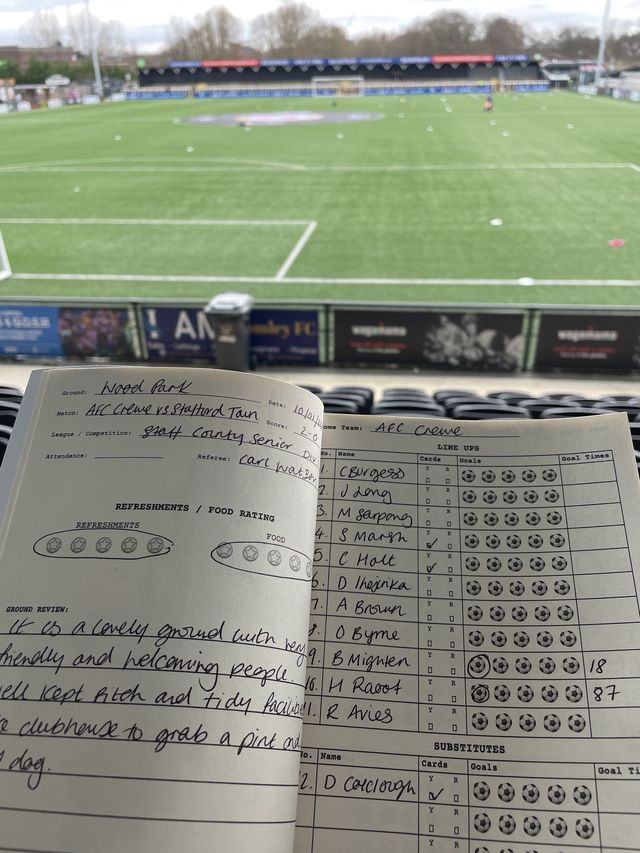 AM
omley FC
wagamama
wagamama
Ground: Wood Park
Date: 10/01/
Match: AFC Crewe vs Stafford Town
Score: 2-0
League / Competition: Staff County Senior Div
Attendance:
Referee: Carl Watson
REFRESHMENTS / FOOD RATING
REFRESHMENTS
FOOD
GROUND REVIEW:
It is a lovely ground with very
friendly and welcoming people.
ell kept pitch and tidy facilit
clubhouse to grab a pint and
dog.
ome Team: AFC Crewe
LINE UPS
No. Name Cards Y R Goals Goal Times
1. C Burgess
2. J Long
3. M Sarpong
4. S Marsh
5. C Holt
6. D Ihejirika
7. A Brown
8. O Byrne
9. B Mighten 18
10. H Raoof 87
11. R Avies
SUBSTITUTES
No. Name Cards Y R Goals Goal Ti
2. D Corclough